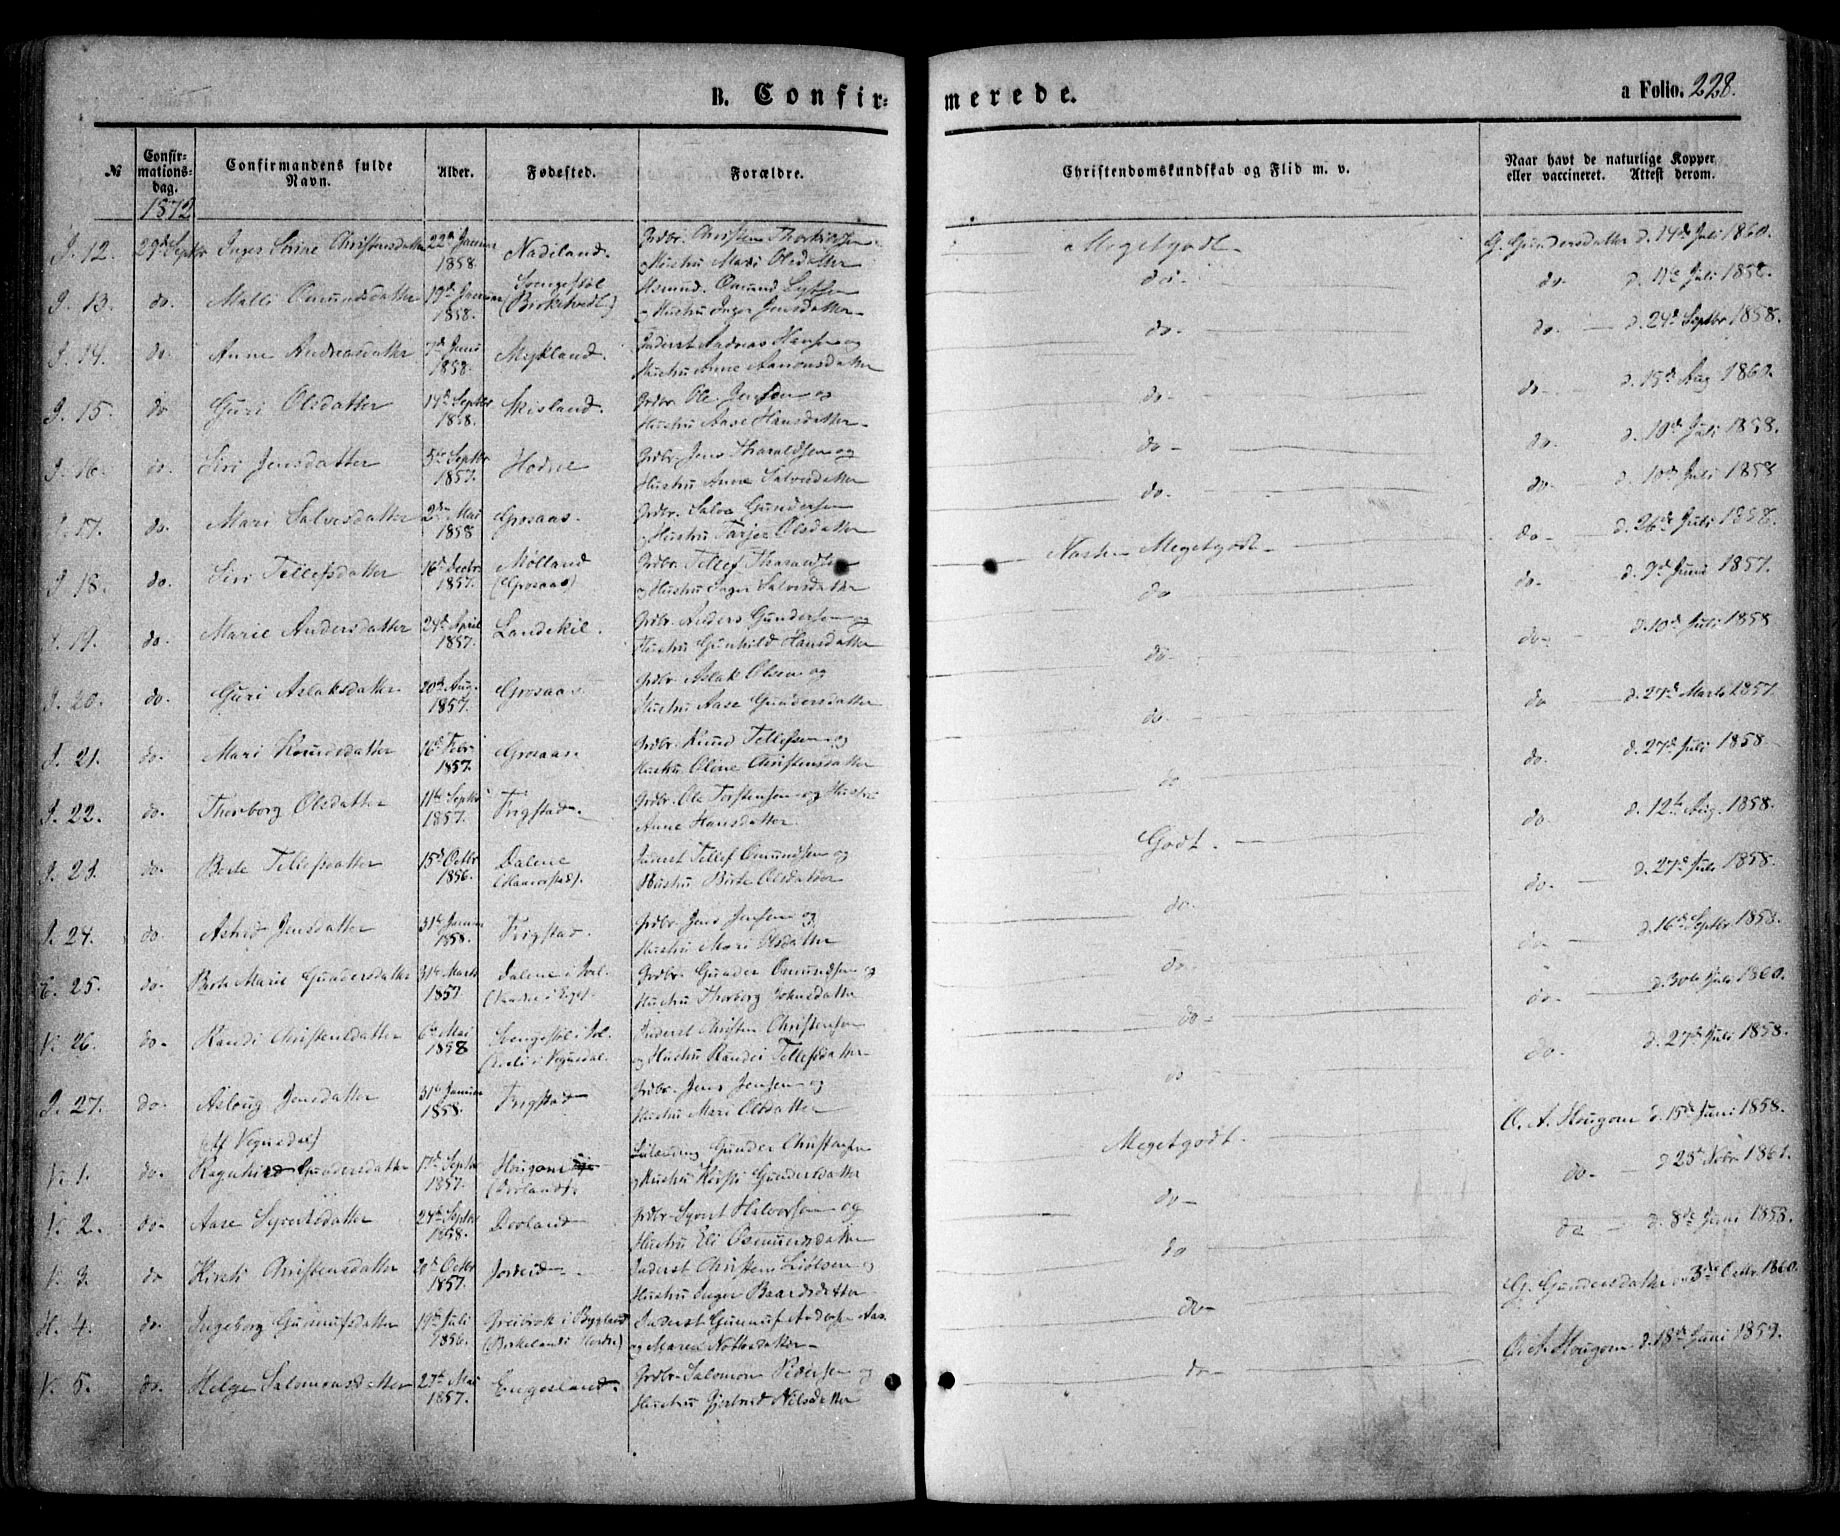 B. Confirmerede.
a Folio. 228.
№ Confirmationsdag. Confirmandens fulde Navn. Alder. Fødested. Forældre. Christendomskundskab og Flid m. v. Naar havt de naturlige Kopper eller vaccineret. Attest derom.
1872
12. 29de Septbr Christensdatter 22de Januar 1858. Nadeland. Grdbr. Christen og Hustru Mari Olsdatter Megetgodt G. Gundersdatter d. 14de Juli 1860.
13. do. Malli Omundsdatter 19de Januar 1858. Hsmnd. Omund og Hustru Inger Jensdatter do. do. Juli 1858.
14. do. Anne Andreasdatter 7de Juni 1858. Mykland. Inderst Andreas Hansen og Hustru Anne Aanonsdatter do. do. d. 24de Septbr 1858.
15. do Guri Olsdatter 14de Septbr 1858. Skisland. Grdbr. Ole Jensen og Hustru Aase Hansdatter do. do d. 15de Aug 1860.
16. do. Siri Jensdatter 5te Septbr 1857. Hodne Grdbr. Jens Tharaldsen og Hustru Anne Salvesdatter do. do. d. 10de Juli 1858.
17. do. Mari Salvesdatter 2den Mai 1858 Grosaas. Grdbr. Salve Gundersen og Hustru Tarjer Olsdatter do. do d. 10de Juli 1858
18. do. Siri Tellefsdatter 16de Decbr 1857. Mølland (Grosaas) Grdbr. Tellef Tharaldsen og Hustru Inger Salvesdatter Næsten Megetgodt do d. 26de Juli 1858.
19. do. Marie Andersdatter 24de April 1857. Landekil. Grdbr. Anders Gundersen og Hustru Gunhild Hansdatter do do d. 9de Juni 1857.
20. do. Guri Aslaksdatter 20de Aug. 1857. Grosaas Grdbr. Aslak Olsen og Hustru Aase Gundersdatter do do d. 10de Juli 1858
21. do. Mari Knudsdatter 16de Febr 1857. Grosaas. Grdbr. Knud Tellefsen og Hustru Oline Christensdatter do do d. 27de Marts 1857.
22. do. Thorborg Olsdatter 11te Septbr 1857. Frigstad. Grdbr. Ole Torstensen og Hustru Anne Hansdatter. do do d. 27de Juli 1858.
23. do. Berte Tellefsdatter 15de Octbr 1856. Dalene Inderst Tellef Omundsen og Hustru Birte Olsdatter Godt. do d. 12te Aug. 1858.
24. do. Astrid Jensdatter 31te Januar 1858. Frigstad. Grdbr. Jens Jensen og Hustru Mari Olsdatter do. do d. 27de Juli 1858.
25. do. Berte Marie Gundersdatter 31te Marts 1857 Dalene i Grdbr. Gunder Osmundsen og Hustru Thorborg Johnsdatter do. do d. 16de Septbr 1858.
26. do. Randi Christensdatter 6te Mai 1858 i Vegusdal. Inderst Christen Christensen og Hustru Randei Tellefsdatter do do d. 30te Juli 1860.
27. do. Asloug Jensdatter 31te Januar 1858. Frigstad Grdbr. Jens Jensen og Hustru Mari Olsdatter do do. d. 27de Juli 1858.
(Af Vegusdal)
V. 1. do. Ragnhild Gundersdatter 17de Septbr 1857. Hougom Gunder Christensen og Hustru Kirsti Gundersdatter Megetgodt. O. A. Hougom d. 15de Juni 1858.
V. 2. do. Aase Syvertsdatter 24de Septbr 1858. Dovland Grdbr. Syvert Halvorsen og Hustru Eli Osmundsdatter do do d. 25de Novbr 1861.
V. 3. do Kirsti Christensdatter 20de Octbr 1857. Inderst Christen Liølsen og Hustru Inger Baardsdatter do do d. 8de Juni 1858.
H. 4. do. Ingeborg Gunnufsdatter 19de Juli 1856. i Bygland (Birkeland i Inderst Gunnuf og Maren do G. Gundersdatter 3de Octbr 1860.
V. 5. do. Helge Salomonsdatter 27de Mai 1857. Engesland. Grdbr. Salomon Pedersen og Hustru Gjertrud Nilsdatter do O. A. Hougom d. 18de Juni 1859.